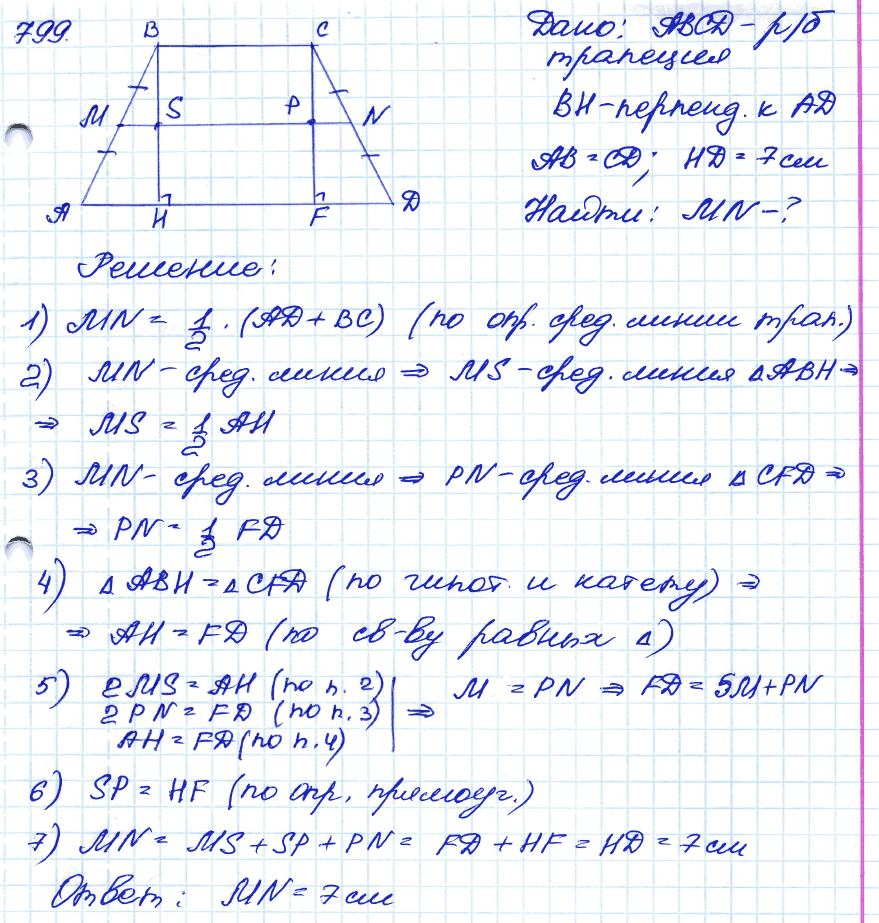 799.
B C
M S P N
A H F D
Дано: ABCD - р/б
трапеция
BH - перпенд. к AD
AB = CD; HD = 7 см
Найти: MN - ?
Решение:
1) MN = 1/2 · (AD + BC) (по опр. сред. линии трап.)
2) MN - сред. линия ⇒ MS - сред. линия ΔABH ⇒
⇒ MS = 1/2 AH
3) MN - сред. линия ⇒ PN - сред. линия ΔCFD ⇒
⇒ PN = 1/2 FD
4) ΔABH = ΔCFD (по гипот. и катету) ⇒
⇒ AH = FD (по св-ву равных Δ)
5) 2MS = AH (по п. 2)
2PN = FD (по п. 3) ⇒ M = PN ⇒ FD = SM + PN
AH = FD (по п. 4)
6) SP = HF (по опр. прямоуг.)
7) MN = MS + SP + PN = FD + HF = HD = 7 см
Ответ: MN = 7 см